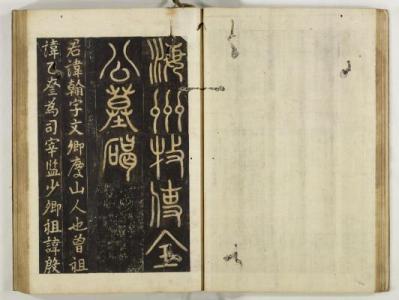 海州牧使金
公墓碣
君諱翰字文卿慶山人也曾祖
諱乙奎為司宰監少卿祖諱殷